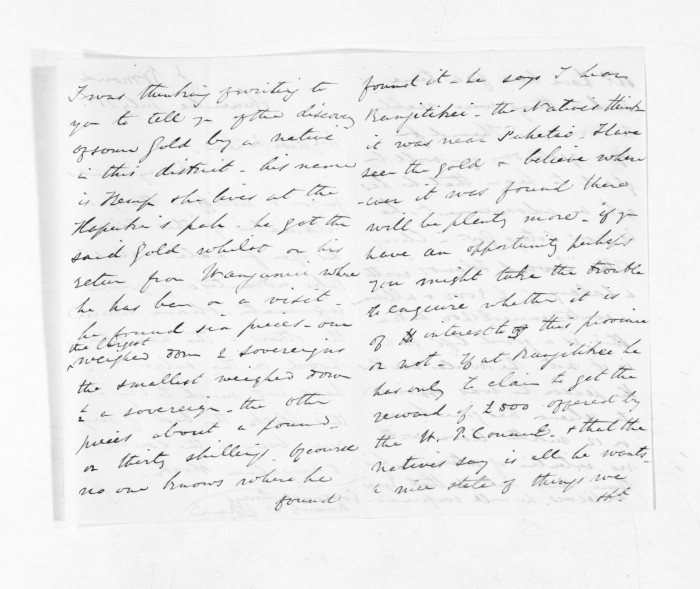 I was thinking of writing to
you to tell you of the discovery
of some Gold by a native
in this district - his name
is Kemp & he lives at the
Hapuku's pah - he got the
said Gold whilst on his
return from Wanganui where
he has been on a visit -
he found six pieces - one
the largest
weighed down 2 sovereigns
the smallest weighed down
½ a sovereign - the other
pieces about a pound -
or thirty shillings. Of course
no one knows where he
found
found it - he says I hear
Rangitikei - the Natives think
it was near Patea. I have
seen the gold & believe where
-ever it was found there
will be plenty more - if you
have an opportunity perhaps
you might take the trouble
to enquire whether it is
of interest to this province
or not - if at Rangitikei he
has only to claim to get the
reward of £500 offered by
the W. P. Council - & that the
Natives say is all he wants -
a nice state of things we